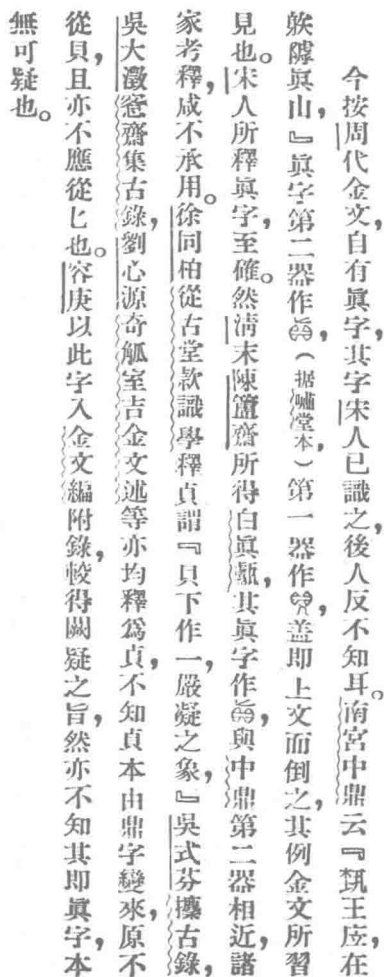 今按周代金文，自有眞字，其字宋人已識之，後人反不知耳。南宮中鼎云『埶王应，在
𩛥𨻰眞山，』眞字第二器作，（据嘯堂本，）第一器作，蓋即上文而倒之，其例金文所習
見也。宋人所釋眞字，至確。然淸末陳簠齋所得白眞甗，其眞字作，與中鼎第二器相近，諸
家考釋，咸不承用。徐同柏從古堂款識學釋貞謂『貝下作一，嚴凝之象，』吳式芬攗古錄，
吳大澂愙齋集古錄，劉心源奇觚室吉金文述等亦均釋爲貞，不知貞本由鼎字變來，原不
從貝，且亦不應從匕也。容庚以此字入金文編附錄，較得闕疑之旨，然亦不知其即眞字，本
無可疑也。